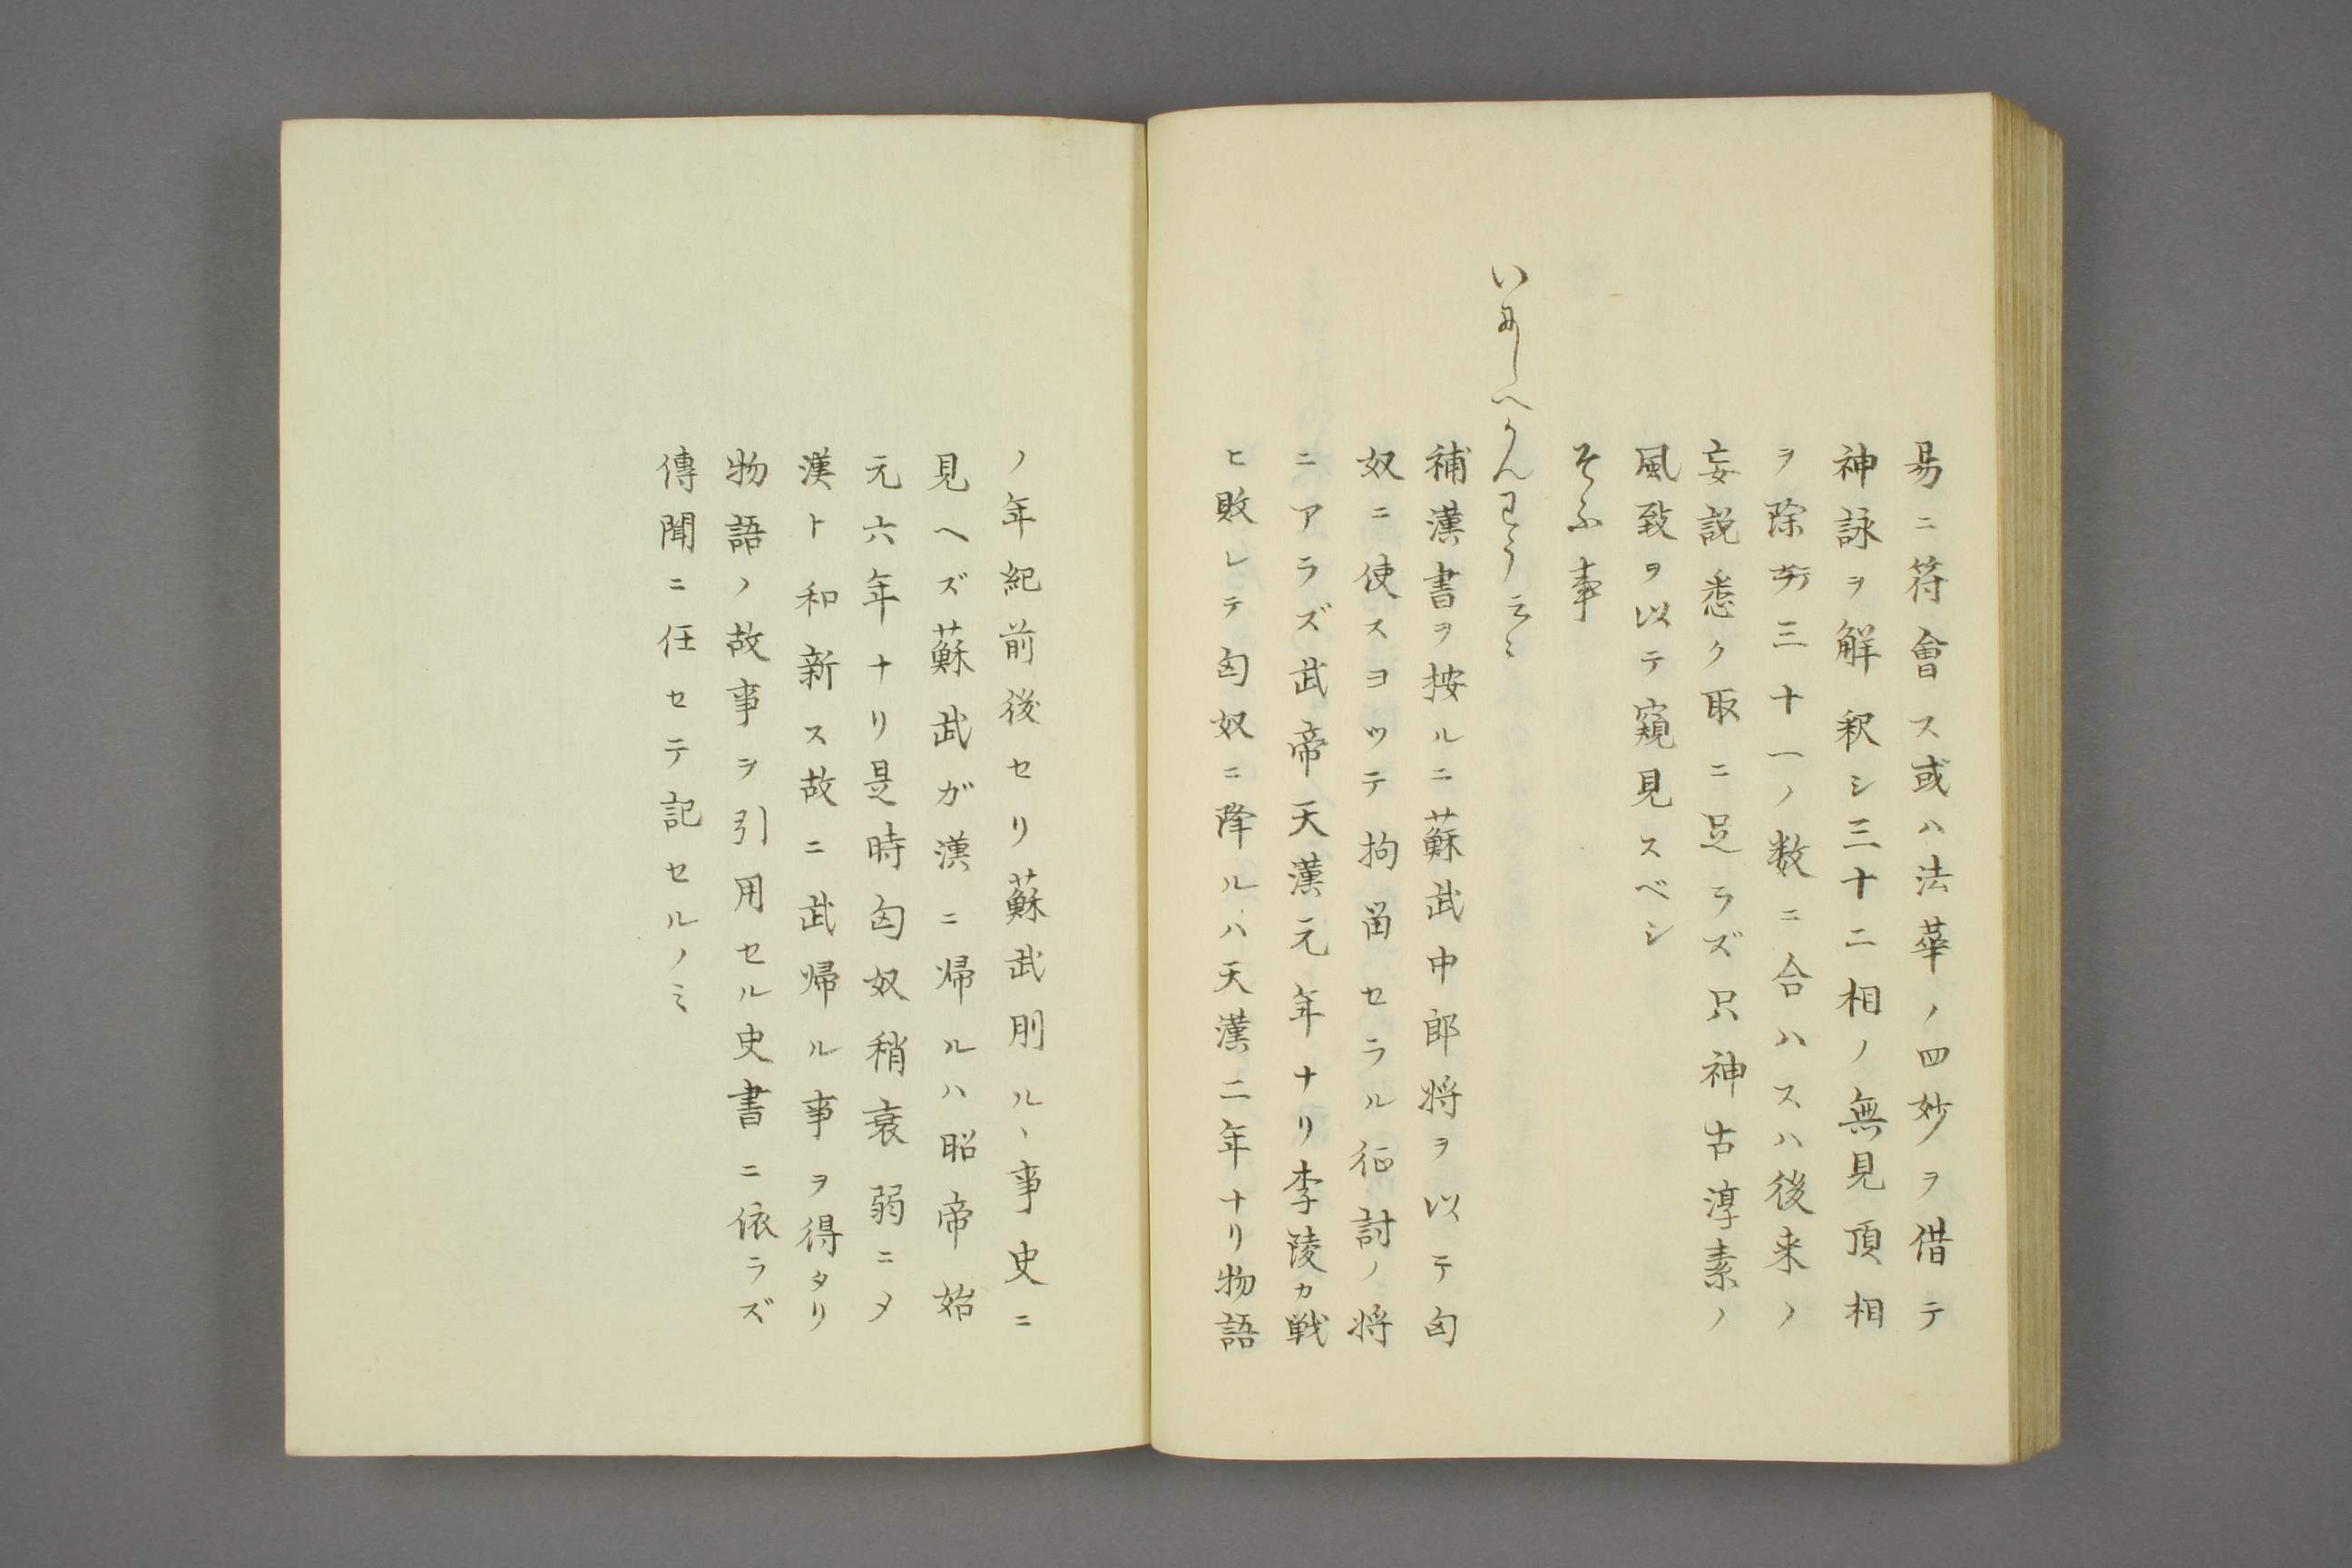 易ニ符會ス或ハ法華ノ四妙ヲ借テ
神詠ヲ解釈シ三十二相ノ無見頂相
ヲ除テ三十一ノ数ニ合ハスハ後来ノ
妄説悉ク取ニ足ラズ只神古淳素ノ
風致ヲ以テ窺見スベシ
そふ事
いにしへかんわう云々
補漢書ヲ按ルニ蘇武中郎将ヲ以テ匈
奴ニ使スヨツテ拘畄セラル征討ノ将
ニアラズ武帝天漢元年ナリ李陵カ戦
ヒ敗レテ匈奴ニ降ルハ天漢二年ナリ物語
ノ年紀前後セリ蘇武刖ルヽ事史ニ
見ヘズ蘇武ガ漢ニ帰ルハ昭帝始
元六年ナリ是時匈奴稍衰弱ニメ
漢ト和新ス故ニ武帰ル事ヲ得タリ
物語ノ故事ヲ引用セル史書ニ依ラズ
傳聞ニ任セテ記セルノミ